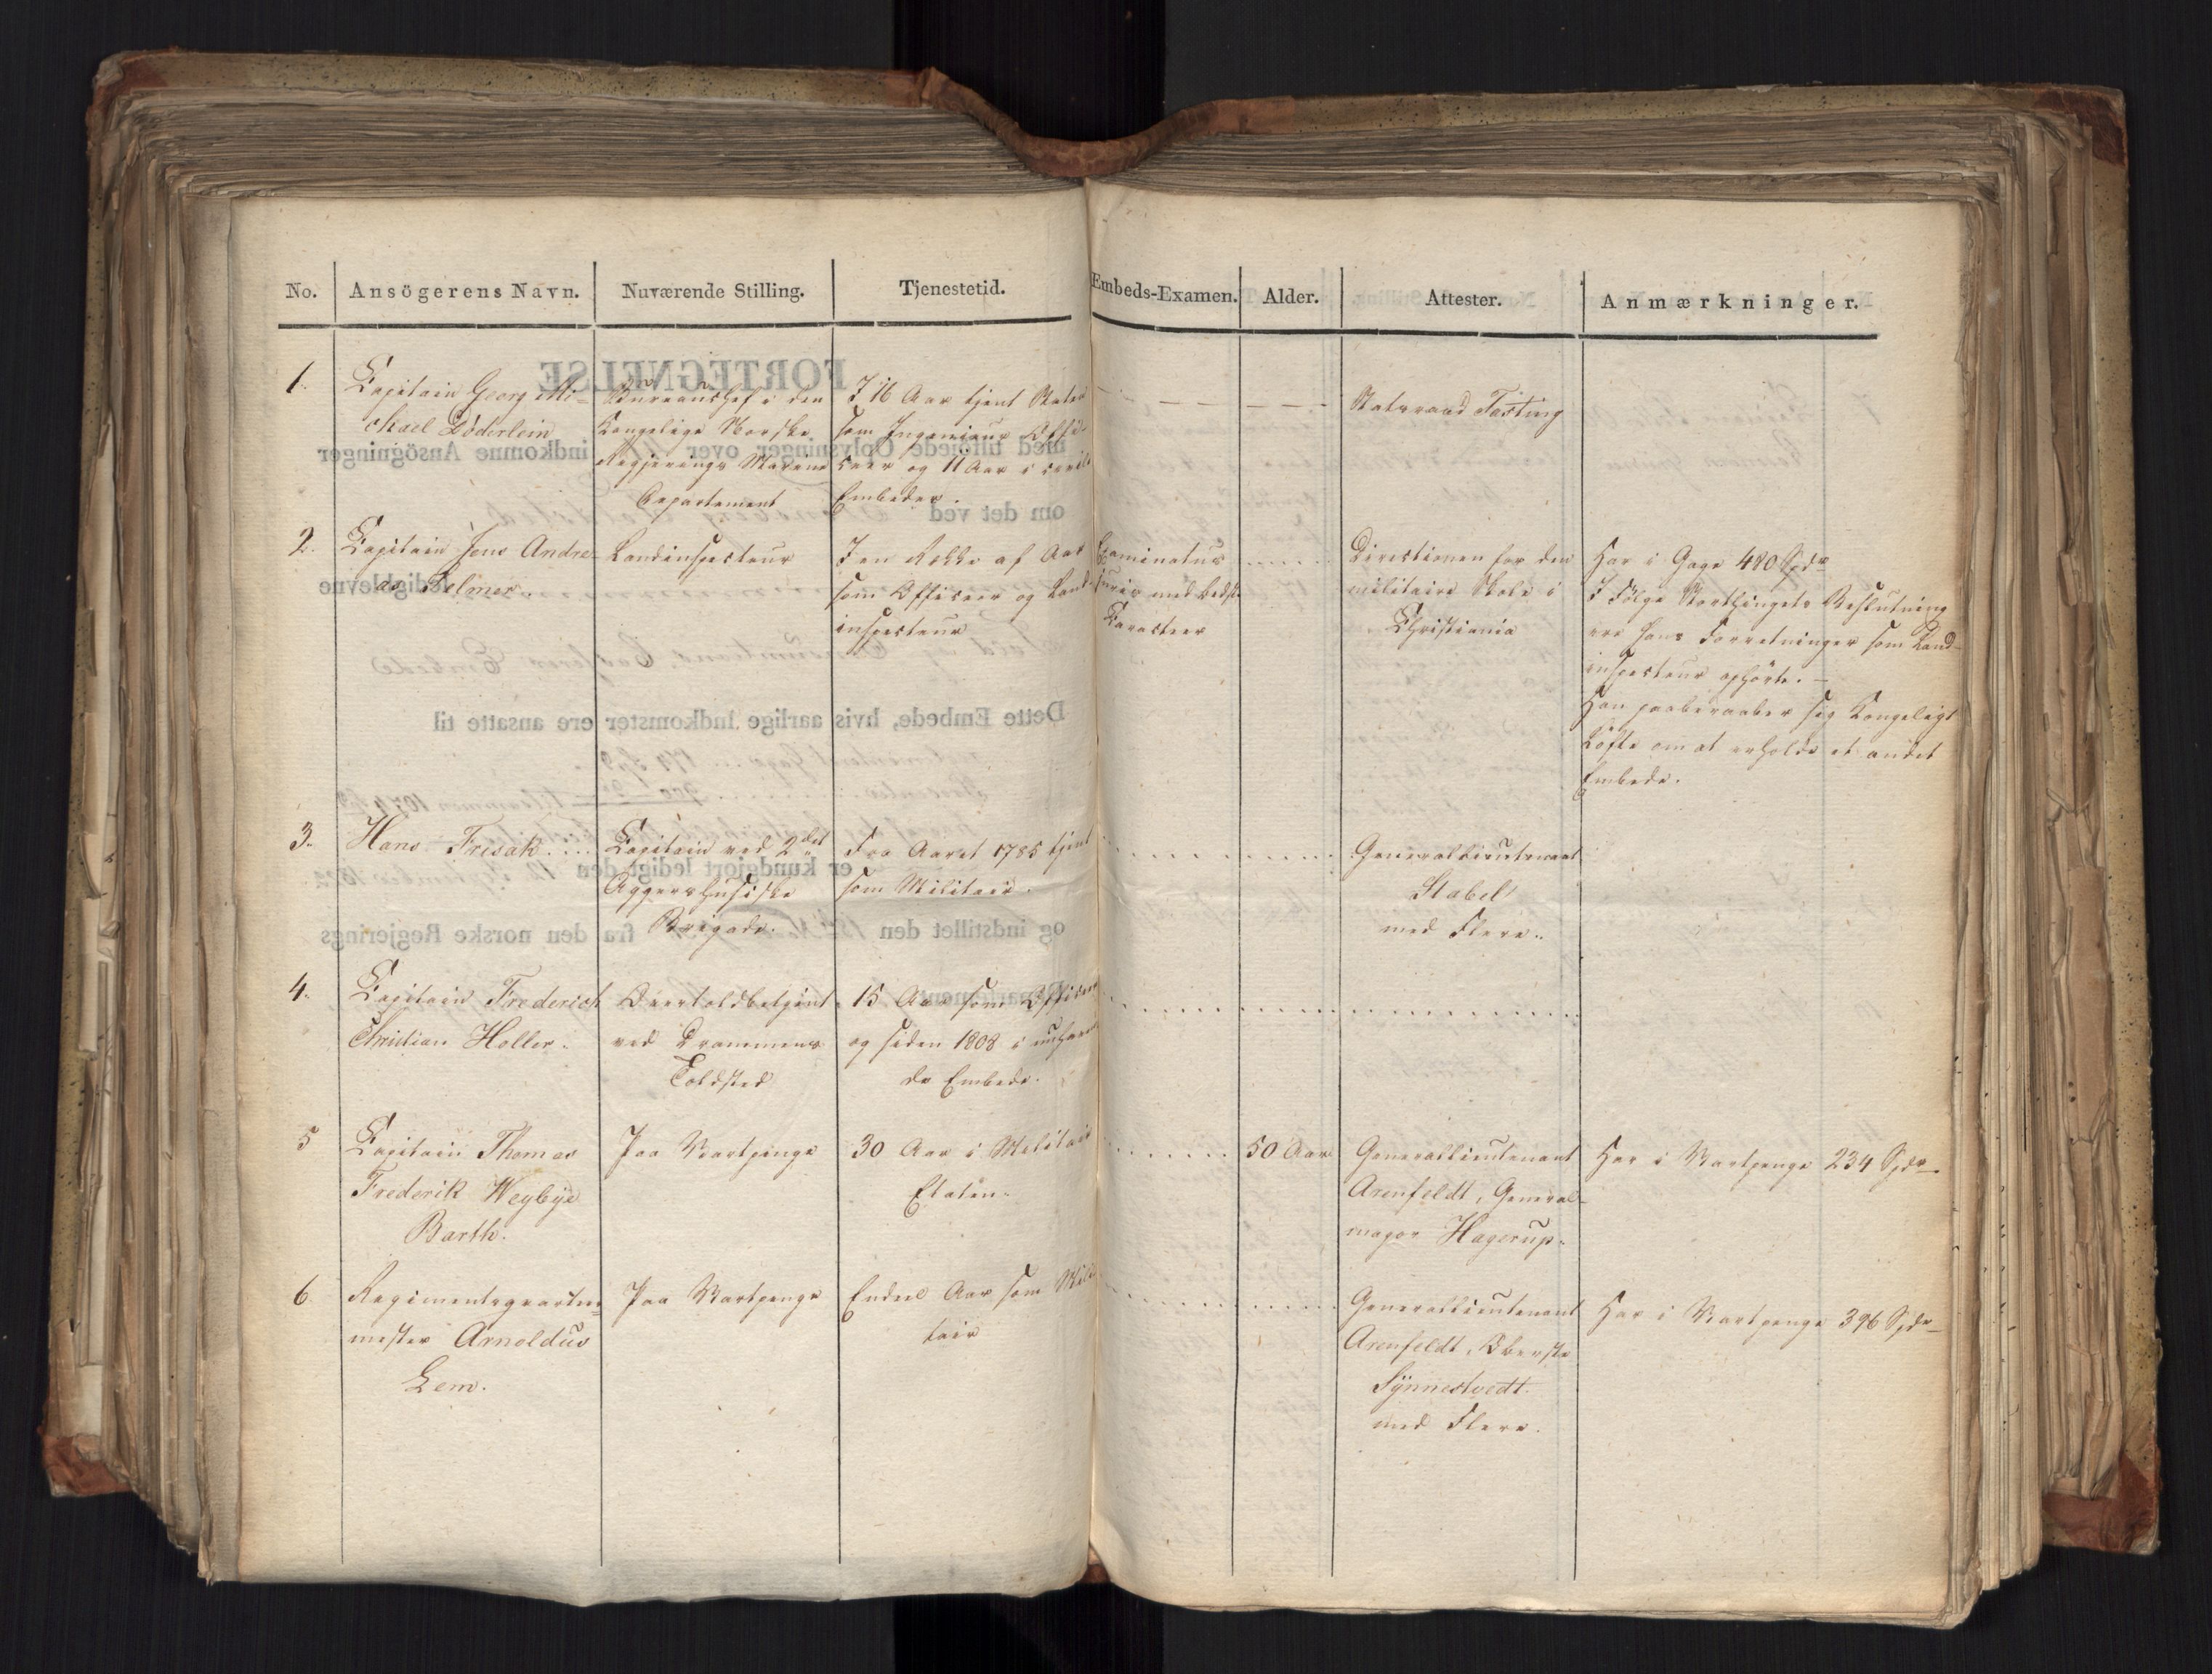 No. Ansögerens Navn. Nuværende Stilling. Tjenestetid. Embeds-Examen. Alder. Attester. Anmærkninger.
1. Capitain Georg Mi-
chael Döderlein
Bureauchef i den
Kongelige Norske
Regjerings Marine
Departement
I 16 Aar tjent Staten
som Ingenieur Offi-
ceer og 11 Aar i civile
Embeder.
Statsraad Fasting
2. Capitain Jens Andre-
as Selmer.
Landinspecteur
I en Række af Aar
som Officeer og Land-
inspecteur
Examinatus
juris med bedste
Caracteer
Directionen for den
militaire Skole i
Christiania
Har i Gage 480 Spdr
I Følge Storthingets Beslutning
ere hans Forretninger som Land-
inspecteur ophörte. —
Han paaberaaber sig Kongeligt
Löfte om at erholde et andet
Embede.
3. Hans Frisak.....
Capitain ved 2det
Aggershusiske
Brigade.
Fra Aaret 1785 tjent
som Militair.
Generallieutenant
Stabel
med Flere.
4. Capitain Frederich
Christian Holler.
Overtoldbetjent
ved Drammens
Toldsted
15 Aar som Officeer
og siden 1808 i nuhaven-
de Embede.
5 Capitain Thomas
Frederik Weybye
Barth.
Paa Vartpenge
30 Aar i Militair
Etaten.
50 Aar
Generallieutenant
Arenfeldt, General-
major Hagerup.
Har i Vartpenge 234 Spdr
6 Regimentsqvarteer-
mester Arnoldus
Lem.
Paa Vartpenge
Endeel Aar som Mili-
tair
Generallieutenant
Arenfeldt, Oberste
Synnestvedt.
med Flere.
Har i Vartpenge 396 Spdr